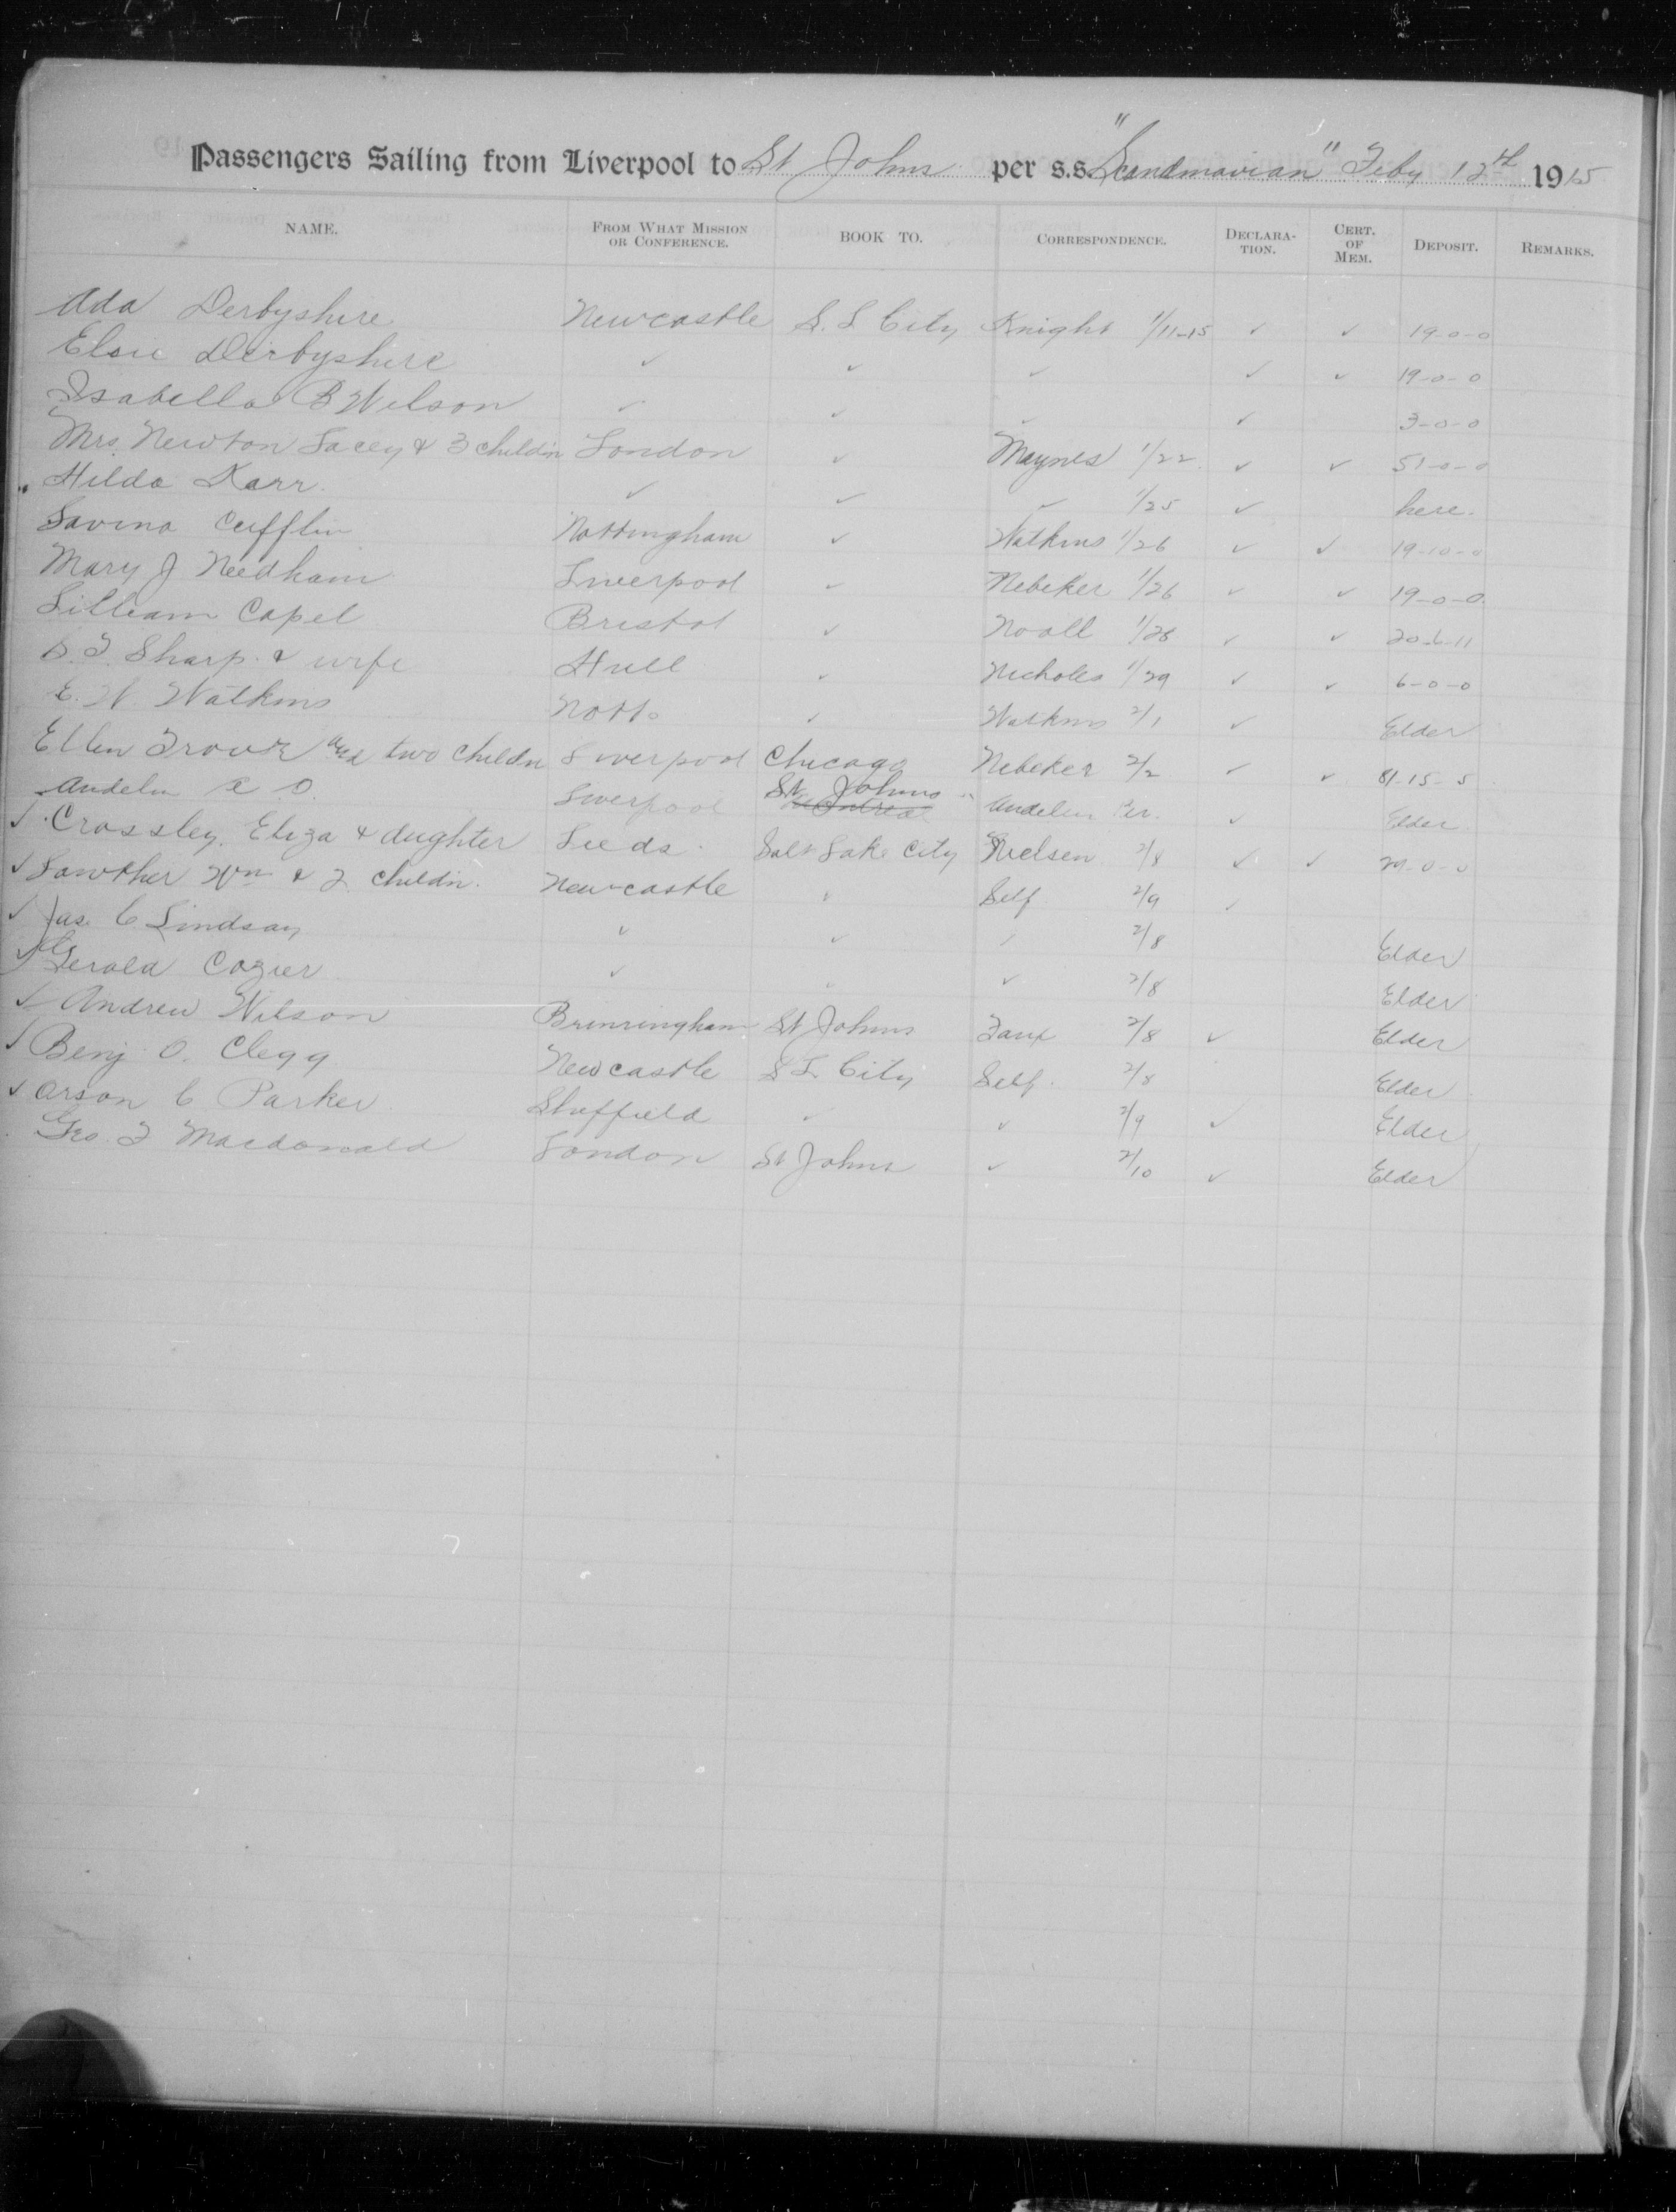 Passengers Sailing from Liverpool to St Johns per s.s. "Scandinavian" Feby 12th 1915
NAME. FROM WHAT MISSION OR CONFERENCE. BOOK TO. CORRESPONDENCE. DECLARA-TION. CERT. OF MEM. DEPOSIT. REMARKS.
Ada Derbyshire Newcastle S. L City Knight 1/11-15 ✓ ✓ 19-0-0
Elsie Derbyshire ✓ ✓ ✓ ✓ ✓ 19-0-0
Isabella B Wilson ✓ ✓ ✓ ✓ 3-0-0
Mrs. Newton Lacey & 3 childn London ✓ Maynes 1/22 ✓ ✓ 51-0-0
Hilda Karr. ✓ ✓ ✓ 1/25 ✓ here.
Lavina Cufflin Nottingham ✓ Watkins 1/26 ✓ ✓ 19-10-0
Mary J Needham Liverpool ✓ Nebeker 1/26 ✓ ✓ 19-0-0
Lilliam Capel Bristol ✓ Noall 1/28 ✓ ✓ 20-6-11
Sharp & wife Hull ✓ Nicholes 1/29 ✓ ✓ 6-0-0
E. W. Watkins Notts ✓ Watkins 2/1 ✓ Elder
Ellen and two childn Liverpool Chicago Nebeker 2/2 ✓ ✓ 81-15-5
Andelin O. Liverpool St. Johns Montreal Andelin Per. ✓ Elder
✓ Crossley, Eliza & dughter Leeds Salt Lake City Nielsen 2/8 ✓ ✓ 29-0-0
✓ Lowther Wm & 2 childn. Newcastle " Self 2/9 ✓
✓ Jas. C Lindsay ✓ ✓ ✓ 2/8 Elder
✓ Gerald Cazier ✓ " ✓ 2/8 Elder
✓ Andrew Wilson Birmingham St Johns Faux 2/8 ✓ Elder
✓ Benj. O. Clegg Newcastle S L. City Self. 2/8 Elder
✓ Orson C Parker Sheffield ✓ ✓ 2/9 ✓ Elder
Geo. F Macdonald London St Johns ✓ 2/10 ✓ Elder